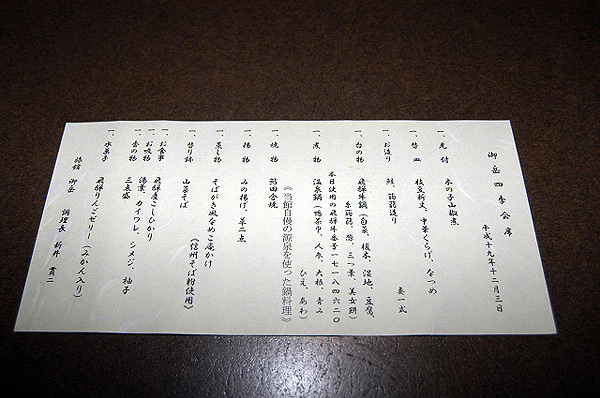 御岳四季会席
平成十九年十二月三日
一、先付 木の子山椒煮
一、替皿 枝豆新丈、中華くらげ、なつめ
妻一式
一、お造り 鮭、筋筋造り
一、台の物 飛騨牛鍋（白菜、榎木、湿地、豆腐、
糸筋筋、葱、三つ葉、美女餅）
本日使用の飛騨牛番号一七一八四六二〇
一、煮物 温泉鍋（鴨茶巾、人参、大根、青み
ひえ、あわ）
《当館自慢の源泉を使った鍋料理》
一、焼物 鮎田合焼
一、揚物 みの揚げ、菜二点
一、蒸し物 そばがき風なめこ庵かけ
一、替り鉢 山菜そば
（信州そば粉使用）
一、お食事 飛騨産こしひかり
一、お吸物 湯葉、カイワレ、シメジ、柚子
一、香の物 三点盛
一、水菓子 飛騨りんごゼリー（みかん入り）
旅館 御岳 調理長 新井